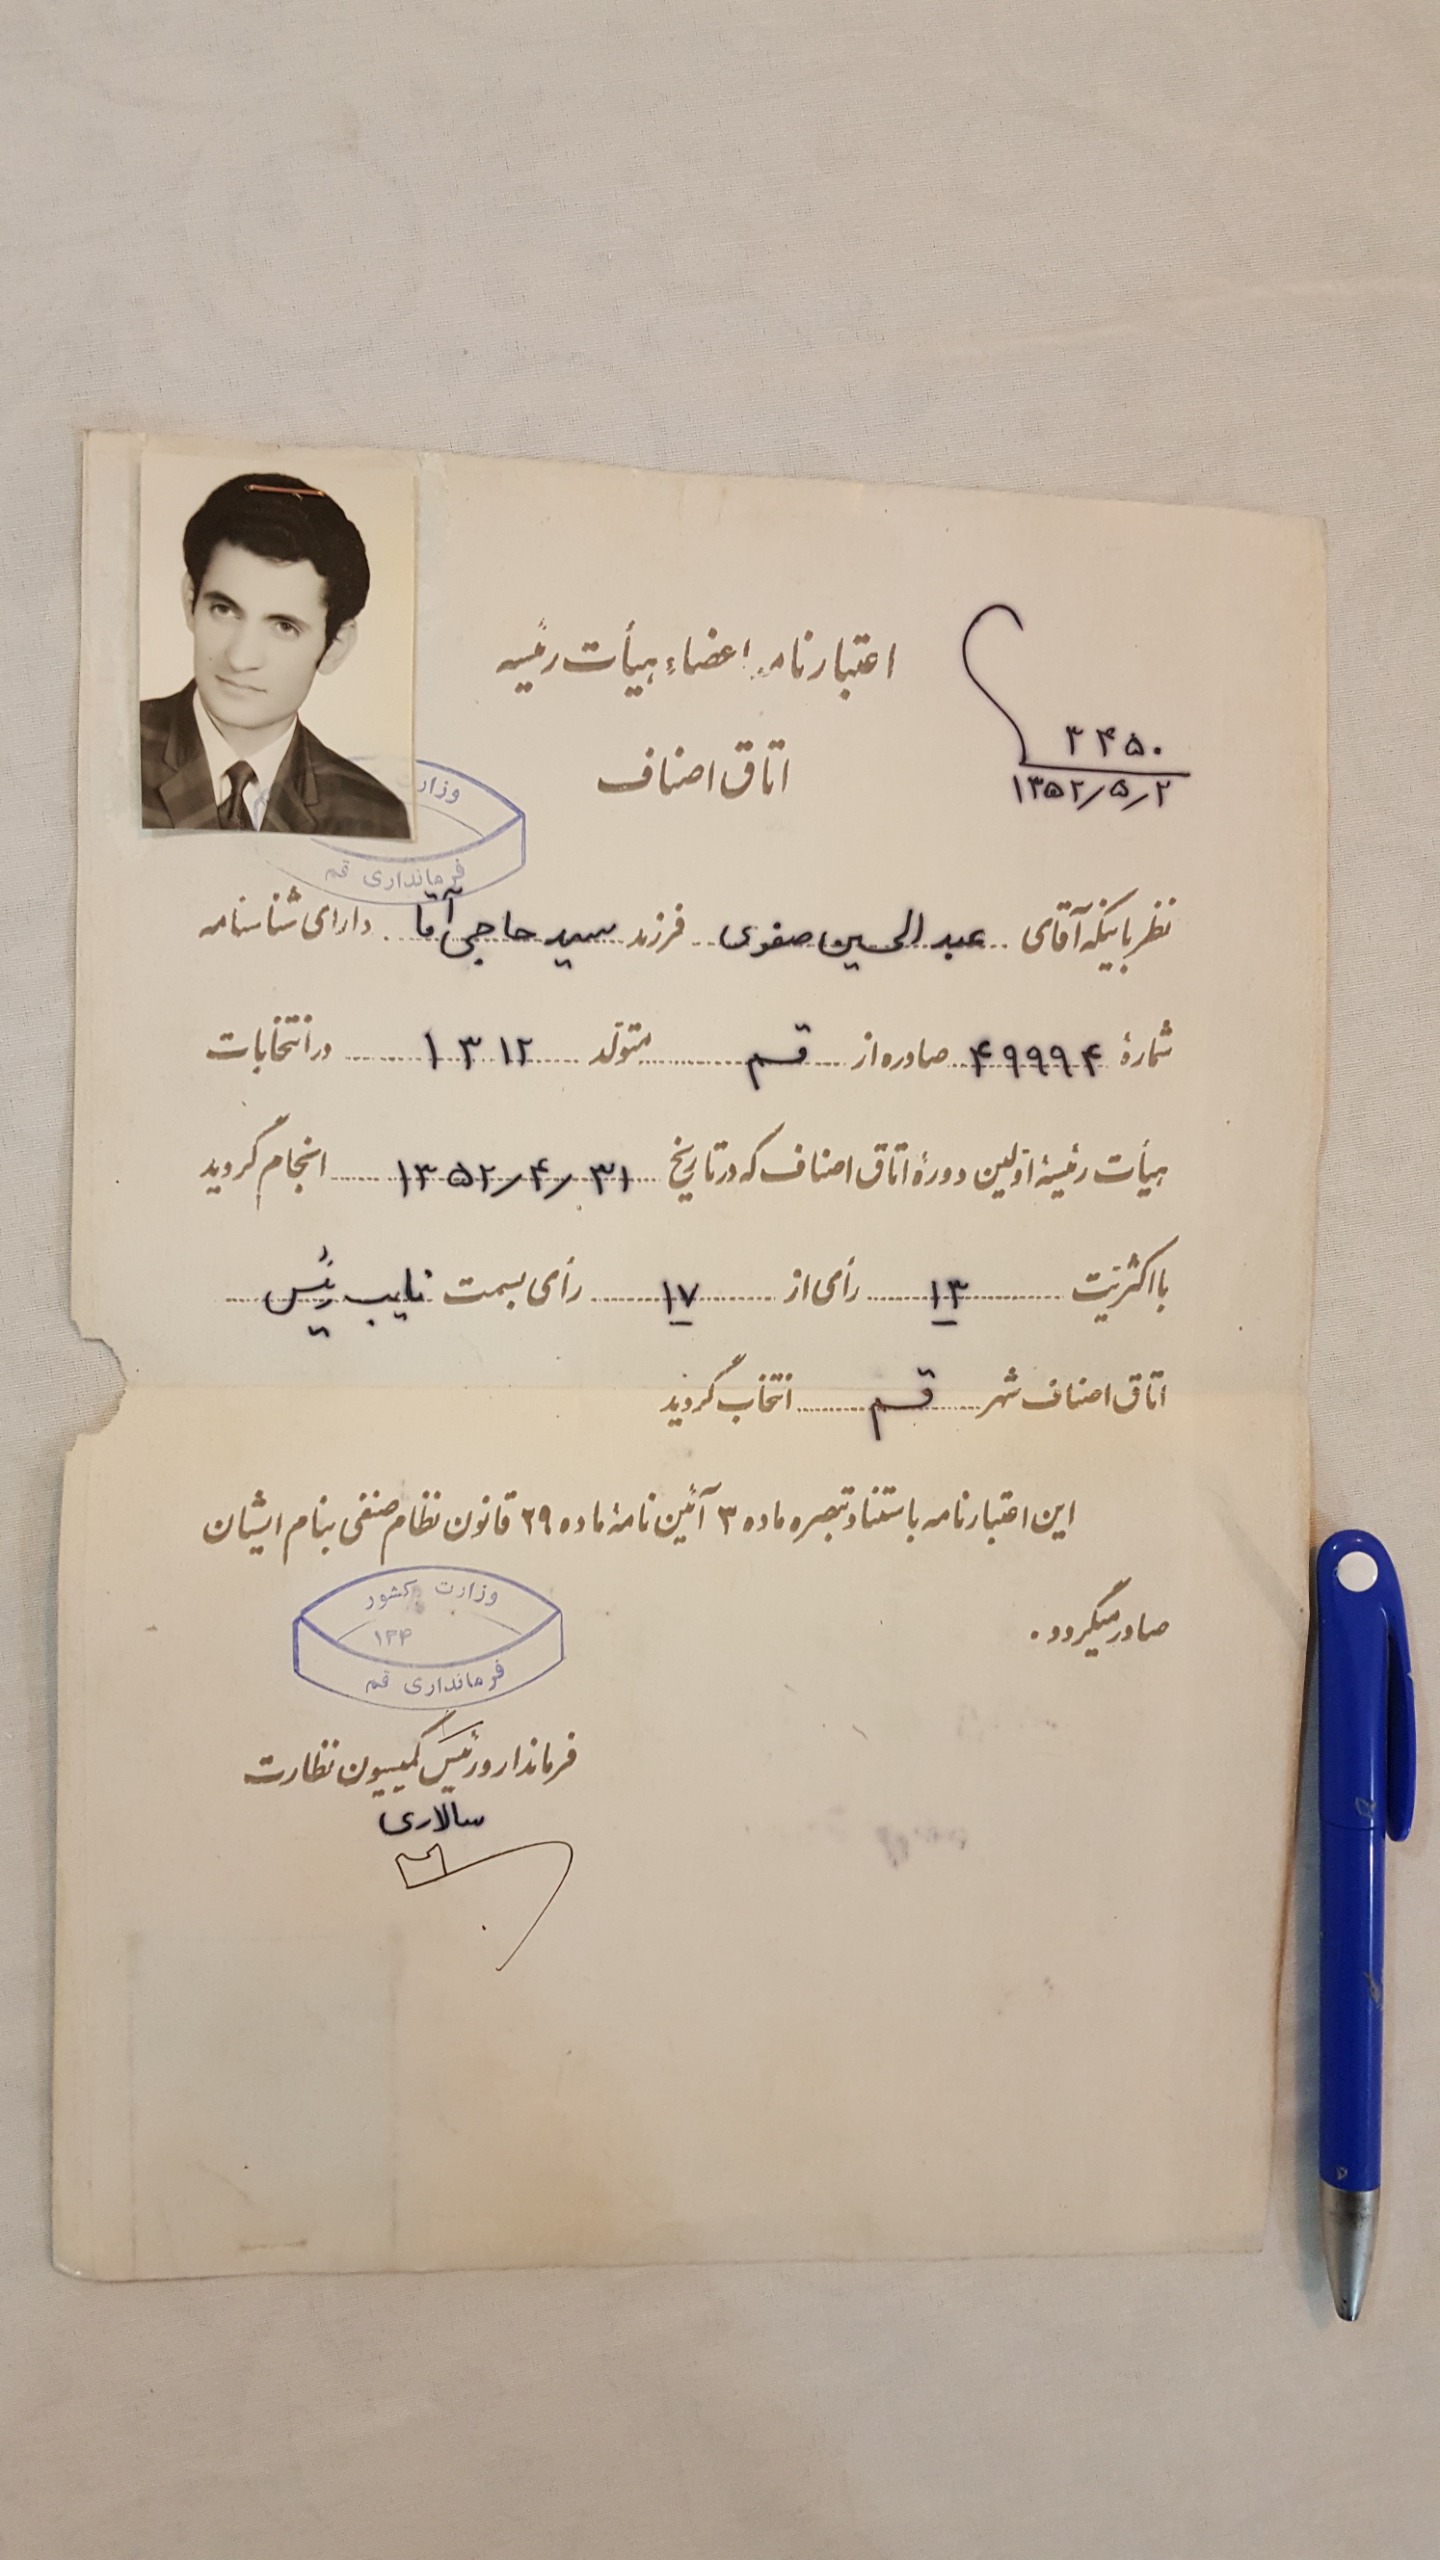 اعتبارنامه اعضاء هیأت رئیسه
اتاق اصناف
۳۴۵۰
۱۳۵۲/۵/۲
وزار
فرمانداری قم
نظر باینکه آقای عبدالحسین صفوی فرزند سید حاجی آقا دارای شناسنامه
شمارهٔ ۴۹۹۹۴ صادره از قم متولد ۱۳۱۲ در انتخابات
هیأت رئیسهٔ اولین دورهٔ اتاق اصناف که در تاریخ ۱۳۵۲/۴/۳۱ انجام گردید
با اکثریت ۱۳ رأی از ۱۷ رأی بسمت نایب رئیس
اتاق اصناف شهر قم انتخاب گردید
این اعتبارنامه باستناد تبصره ماده ۳ آئین نامهٔ ماده ۲۹ قانون نظام صنفی بنام ایشان
صادر میگردد .
وزارت کشور
۱۳۴
فرمانداری قم
فرماندار و رئیس کمیسیون نظارت
سالاری